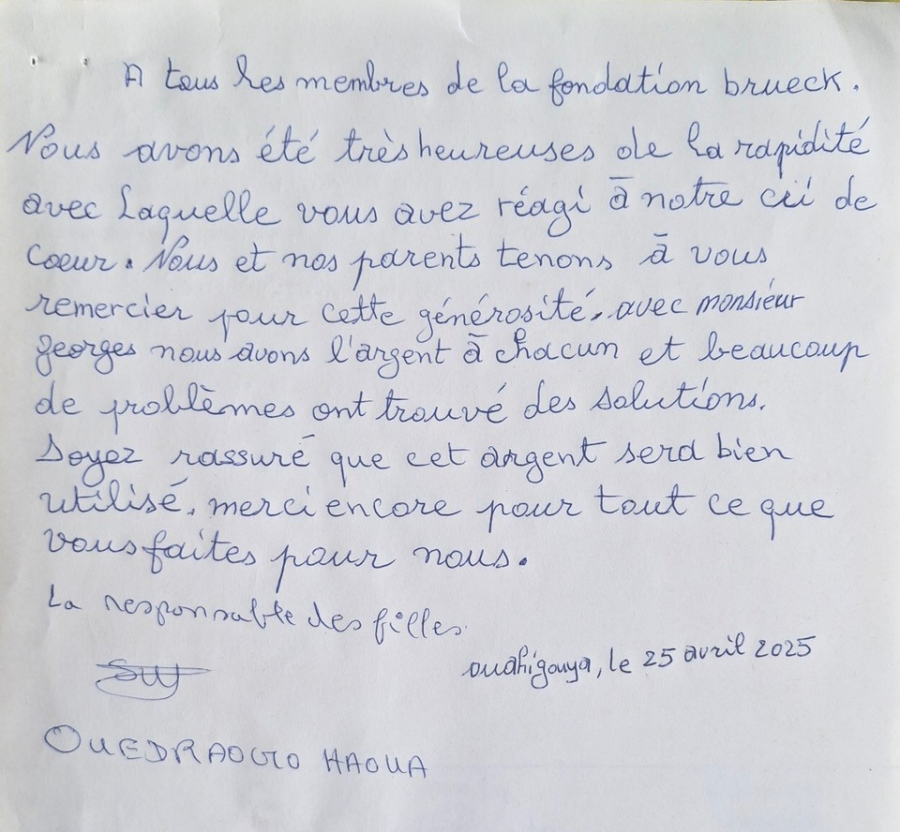 A tous les membres de la fondation brueck.
Nous avons été très heureuses de la rapidité
avec Laquelle vous avez réagi à notre cri de
Coeur. Nous et nos parents tenons à vous
remercier pour cette générosité. avec monsieur
georges nous avons l'argent à chacun et beaucoup
de problèmes ont trouvé des solutions.
Soyez rassuré que cet argent sera bien
utilisé. merci encore pour tout ce que
vous faites pour nous.
La responsable des filles.
ouahigouya, le 25 avril 2025
OUEDRAOGO HAOUA